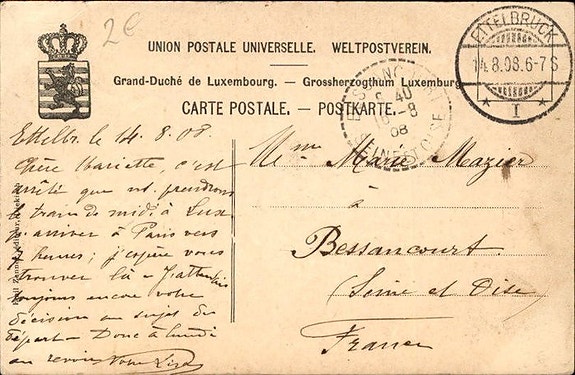 2€
UNION POSTALE UNIVERSELLE. WELTPOSTVEREIN.
Grand-Duché de Luxembourg. — Grossherzogthum Luxemburg
CARTE POSTALE. — POSTKARTE.
ETTELBRUCK
14.8.08.6-7S
* I *
40
16-8
08
SEINE-ET-OISE
Ettelbr. le 14.8.08.
Chère Mariette, c'est
arrêté que ns. prendrons
le train de midi à Lux
p. arriver à Paris vers
heures; j'espère vous
trouver là - J'attends
toujours encore votre
décision au sujet du
départ - Donc à lundi
au revoir Votre
Mme Marie Mazier
à
Bessancourt.
(Seine et Oise)
France